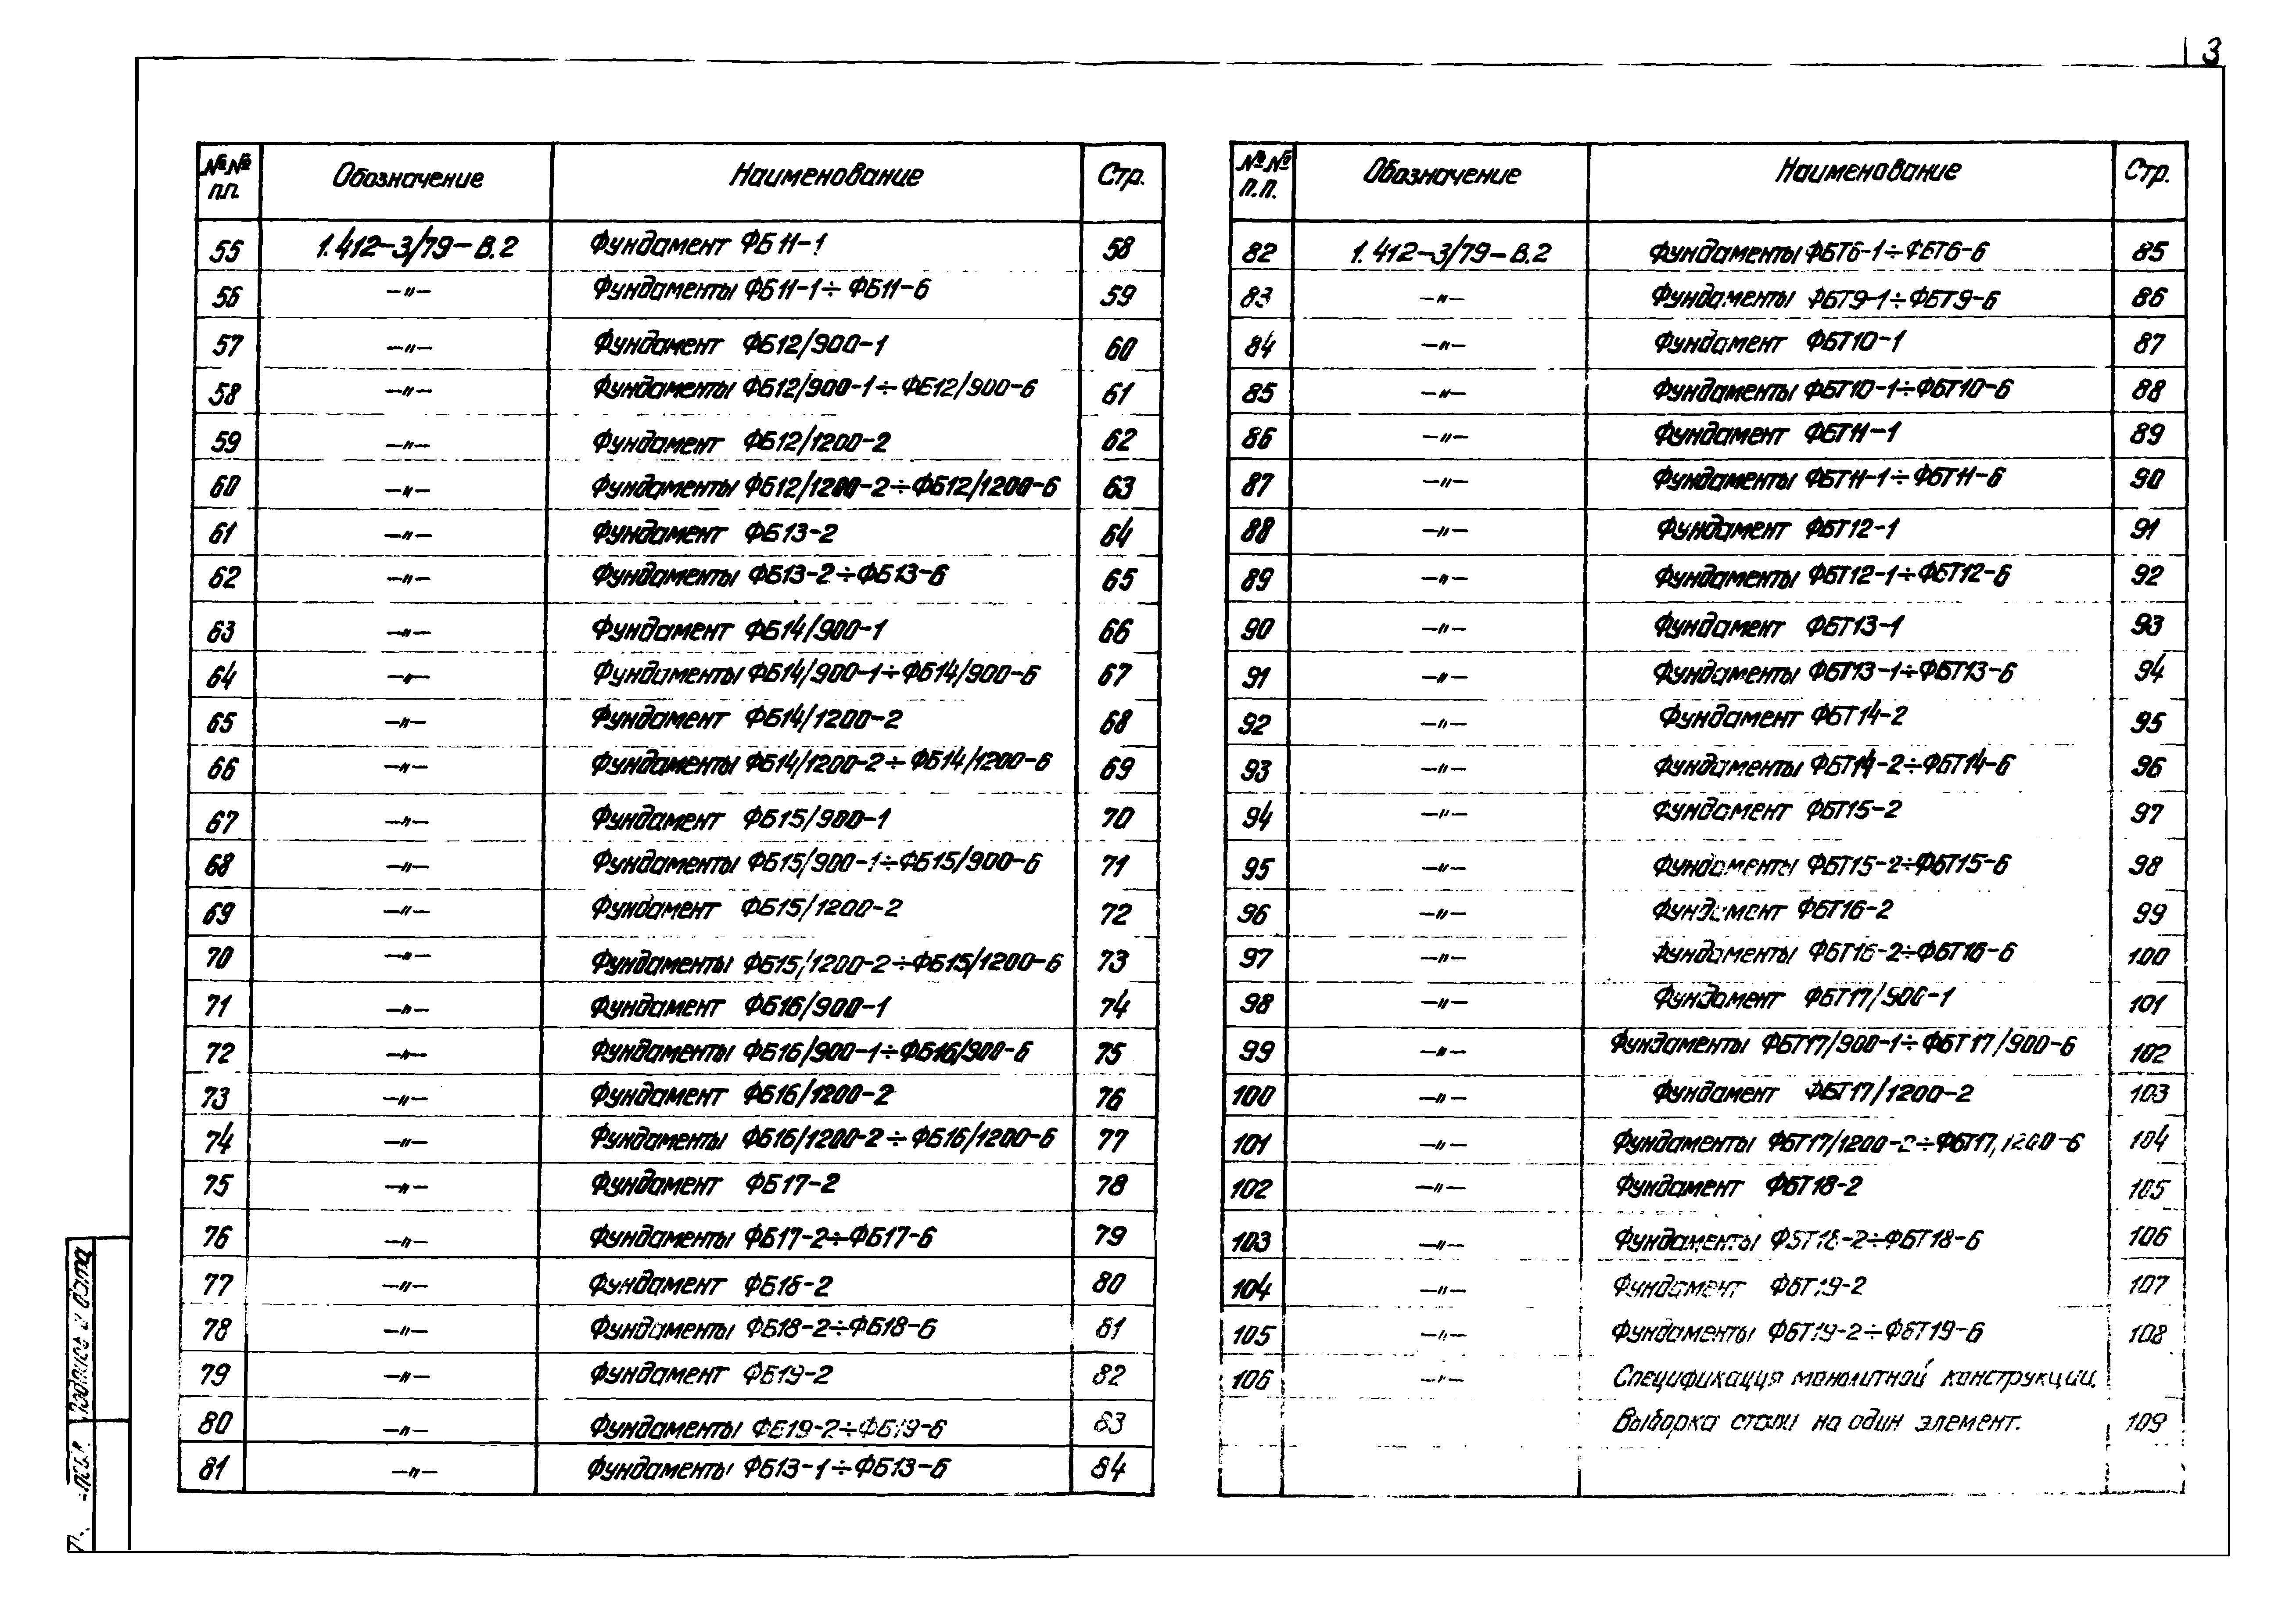 3
№№ п.п. Обозначение Наименование Стр.
55 1.412-3/79-В.2 Фундамент ФБ11-1 58
56 -"- Фундаменты ФБ11-1÷ФБ11-6 59
57 -"- Фундамент ФБ12/900-1 60
58 -"- Фундаменты ФБ12/900-1÷ФБ12/900-6 61
59 -"- Фундамент ФБ12/1200-2 62
60 -"- Фундаменты ФБ12/1200-2÷ФБ12/1200-6 63
61 -"- Фундамент ФБ13-2 64
62 -"- Фундаменты ФБ13-2÷ФБ13-6 65
63 -"- Фундамент ФБ14/900-1 66
64 -"- Фундаменты ФБ14/900-1÷ФБ14/900-6 67
65 -"- Фундамент ФБ14/1200-2 68
66 -"- Фундаменты ФБ14/1200-2÷ФБ14/1200-6 69
67 -"- Фундамент ФБ15/900-1 70
68 -"- Фундаменты ФБ15/900-1÷ФБ15/900-6 71
69 -"- Фундамент ФБ15/1200-2 72
70 -"- Фундаменты ФБ15/1200-2÷ФБ15/1200-6 73
71 -"- Фундамент ФБ16/900-1 74
72 -"- Фундаменты ФБ16/900-1÷ФБ16/900-6 75
73 -"- Фундамент ФБ16/1200-2 76
74 -"- Фундаменты ФБ16/1200-2÷ФБ16/1200-6 77
75 -"- Фундамент ФБ17-2 78
76 -"- Фундаменты ФБ17-2÷ФБ17-6 79
77 -"- Фундамент ФБ18-2 80
78 -"- Фундаменты ФБ18-2÷ФБ18-6 81
79 -"- Фундамент ФБ19-2 82
80 -"- Фундаменты ФБ19-2÷ФБ19-6 83
81 -"- Фундаменты ФБ13-1÷ФБ13-6 84
№№ п.п. Обозначение Наименование Стр.
82 1.412-3/79-В.2 Фундаменты ФБТ6-1÷ФБТ6-6 85
83 -"- Фундаменты ФБТ9-1÷ФБТ9-6 86
84 -"- Фундамент ФБТ10-1 87
85 -"- Фундаменты ФБТ10-1÷ФБТ10-6 88
86 -"- Фундамент ФБТ11-1 89
87 -"- Фундаменты ФБТ11-1÷ФБТ11-6 90
88 -"- Фундамент ФБТ12-1 91
89 -"- Фундаменты ФБТ12-1÷ФБТ12-6 92
90 -"- Фундамент ФБТ13-1 93
91 -"- Фундаменты ФБТ13-1÷ФБТ13-6 94
92 -"- Фундамент ФБТ14-2 95
93 -"- Фундаменты ФБТ14-2÷ФБТ14-6 96
94 -"- Фундамент ФБТ15-2 97
95 -"- Фундаменты ФБТ15-2÷ФБТ15-6 98
96 -"- Фундамент ФБТ16-2 99
97 -"- Фундаменты ФБТ16-2÷ФБТ16-6 100
98 -"- Фундамент ФБТ17/900-1 101
99 -"- Фундаменты ФБТ17/900-1÷ФБТ17/900-6 102
100 -"- Фундамент ФБТ17/1200-2 103
101 -"- Фундаменты ФБТ17/1200-2÷ФБТ17/1200-6 104
102 -"- Фундамент ФБТ18-2 105
103 -"- Фундаменты ФБТ18-2÷ФБТ18-6 106
104 -"- Фундамент ФБТ19-2 107
105 -"- Фундаменты ФБТ19-2÷ФБТ19-6 108
106 -"- Спецификация монолитной конструкции.
Выборка стали на один элемент. 109
Подпись и дата